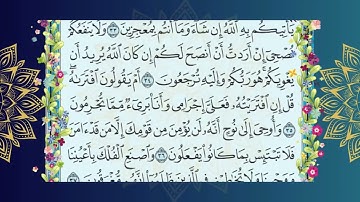 يَأْتِيكُم بِهِ ٱللَّهُ إِن شَآءَ وَمَآ أَنتُم بِمُعْجِزِينَ ٣٣ وَلَا يَنفَعُكُمْ
نُصْحِىٓ إِنْ أَرَدتُّ أَنْ أَنصَحَ لَكُمْ إِن كَانَ ٱللَّهُ يُرِيدُ أَن
يُغْوِيَكُمْ هُوَ رَبُّكُمْ وَإِلَيْهِ تُرْجَعُونَ ٣٤ أَمْ يَقُولُونَ ٱفْتَرَىٰهُ
قُلْ إِنِ ٱفْتَرَيْتُهُۥ فَعَلَىَّ إِجْرَامِى وَأَنَا۠ بَرِىٓءٌ مِّمَّا تُجْرِمُونَ
٣٥ وَأُوحِىَ إِلَىٰ نُوحٍ أَنَّهُۥ لَن يُؤْمِنَ مِن قَوْمِكَ إِلَّا مَن قَدْ ءَامَنَ
فَلَا تَبْتَئِسْ بِمَا كَانُوا۟ يَفْعَلُونَ ٣٦ وَٱصْنَعِ ٱلْفُلْكَ بِأَعْيُنِنَا